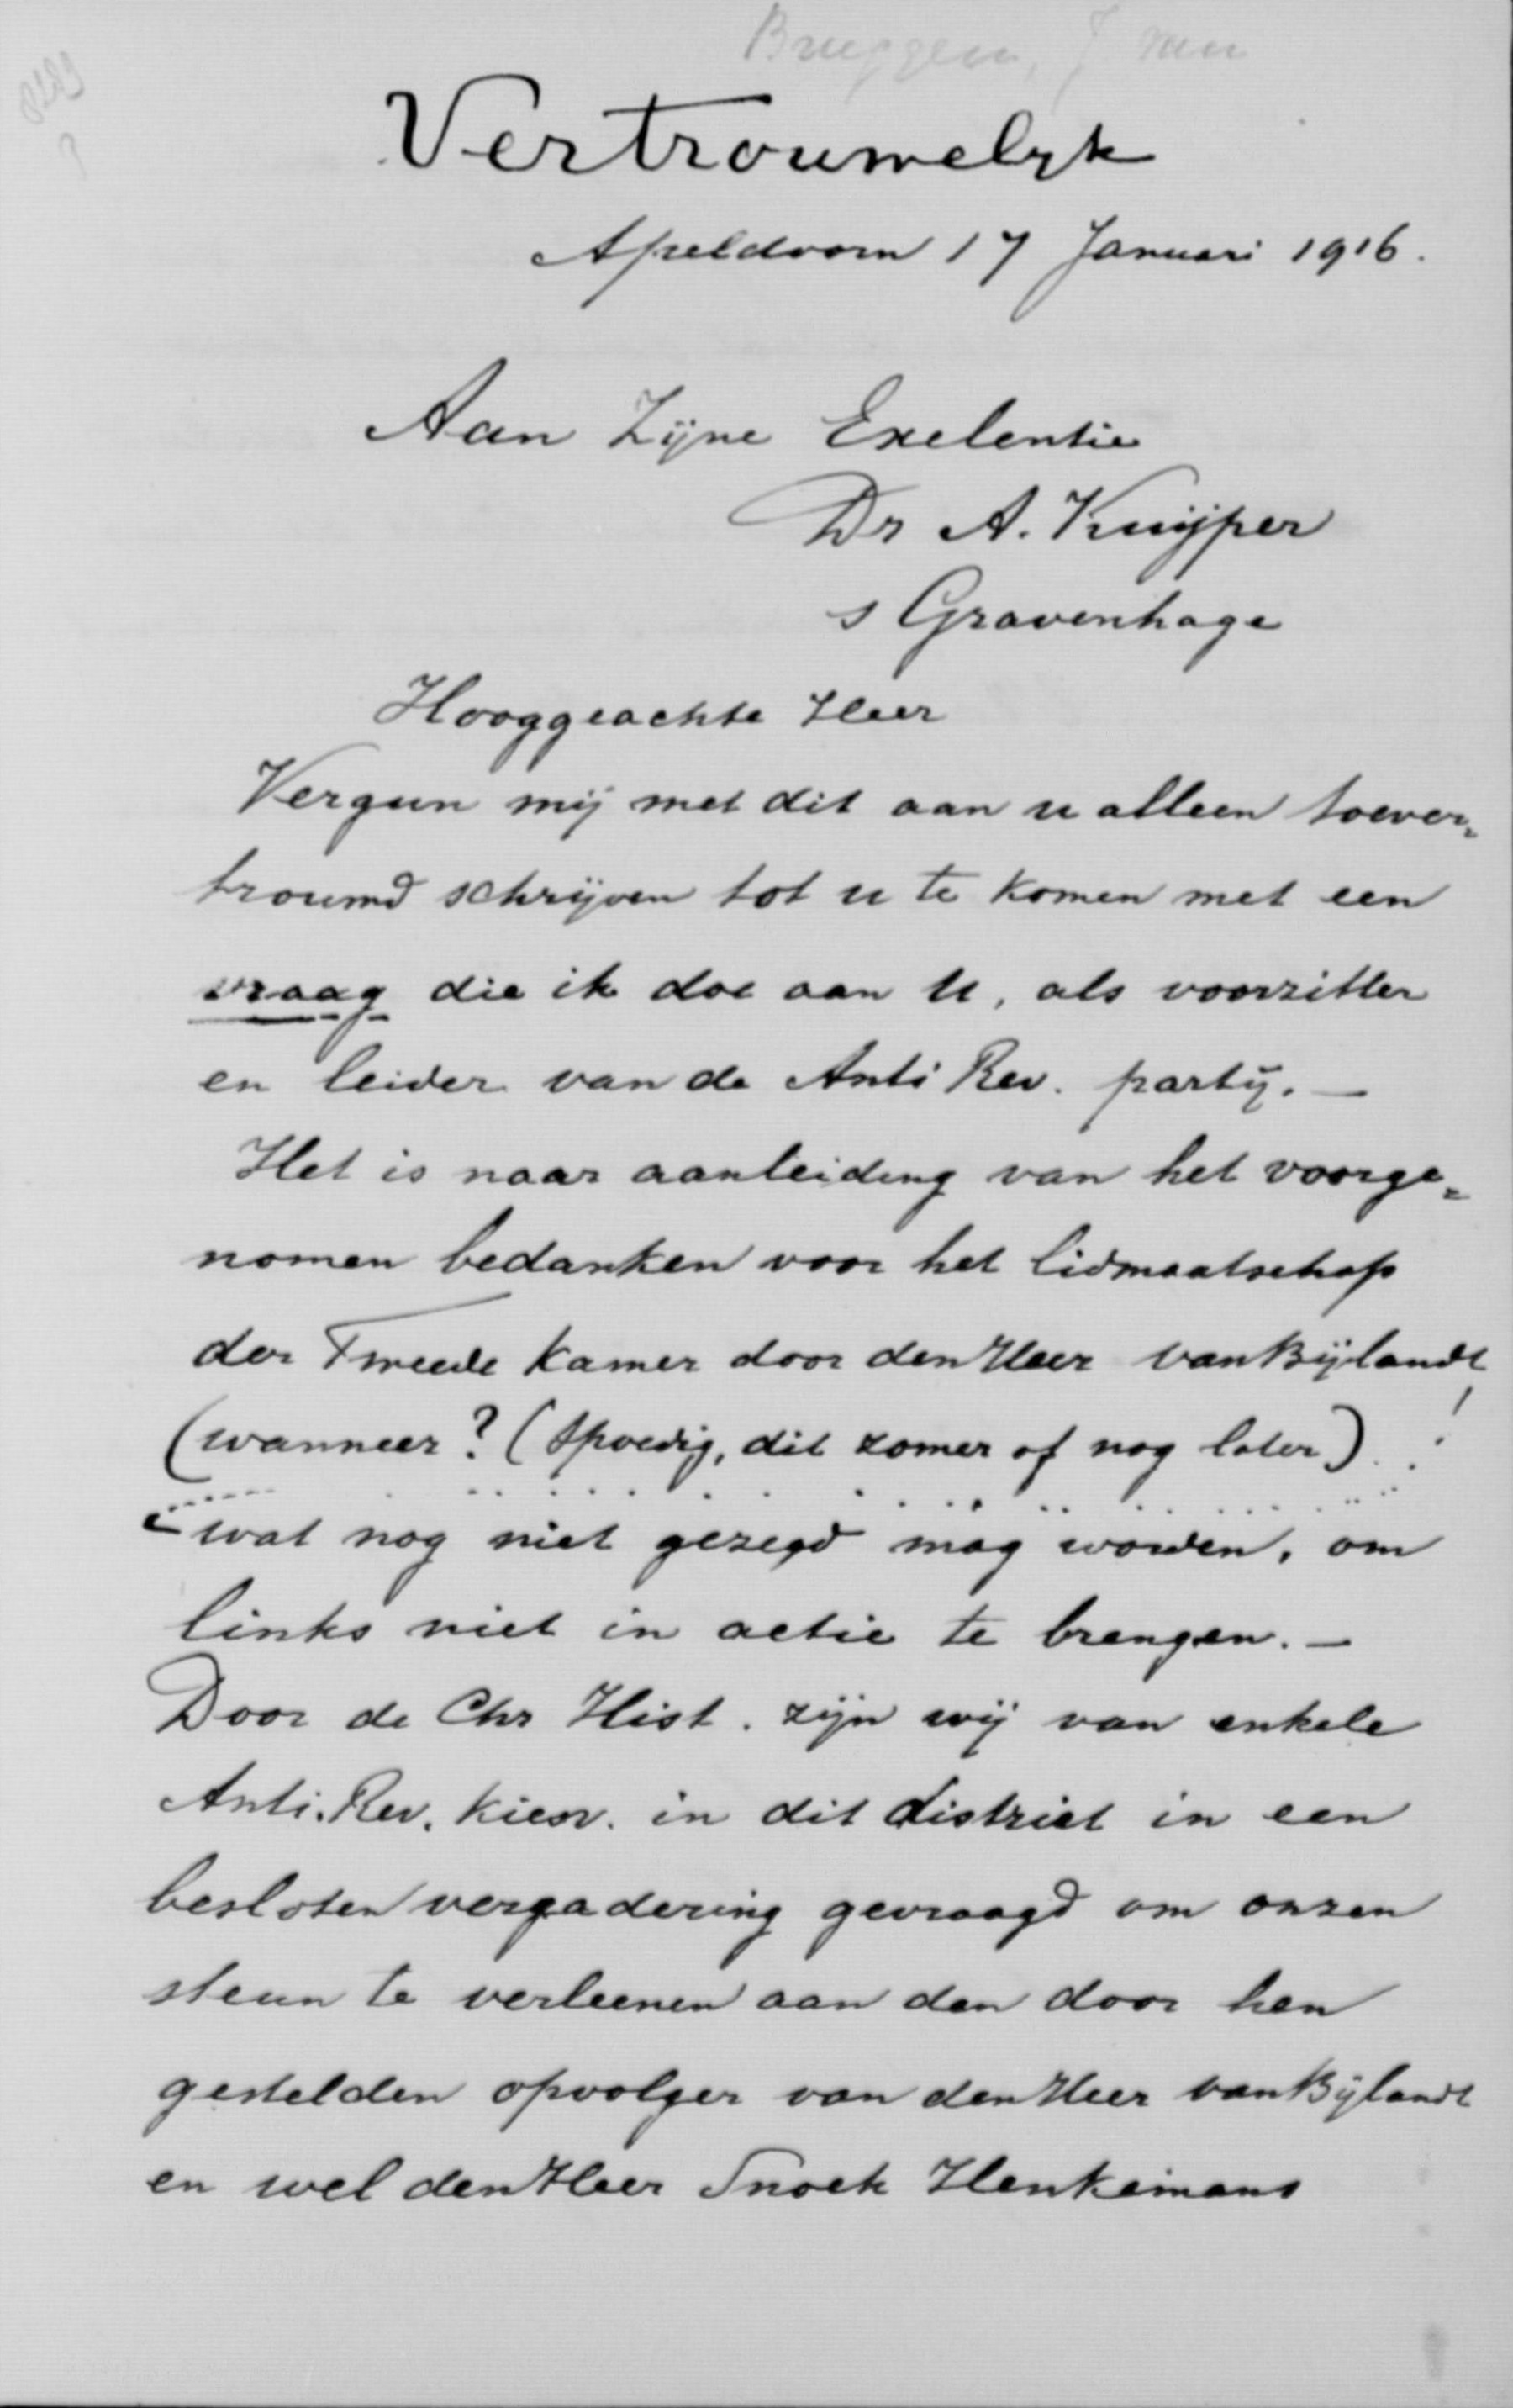 Bruggen, J van
Vertrouwelyk
Apeldoorn 17 Januari 1916.
Aan Zijne Exelentie
Dr A. Kuijper
s Gravenhage
Hooggeachte Heer
Vergun mij met dit aan u alleen toever=
trouwd schrijven tot u te komen met een
vraag die ik doe aan U, als voorzitter
en leider van de Anti Rev. partij. —
Het is naar aanleiding van het voorge=
nomen bedanken voor het lidmaatschap
der Tweede Kamer door den Heer van Bijlandt
(wanneer? (Spoedig, dit zomer of nog later) !
wat nog niet gezegd mag worden, om
links niet in actie te brengen. —
Door de Chr Hist. zijn wij van enkele
Anti. Rev. Kiesv. in dit district in een
besloten vergadering gevraagd om onzen
steun te verleenen aan den door hen
gestelden opvolger van den Heer van Bijlandt
en wel den Heer Snoek Henkemans